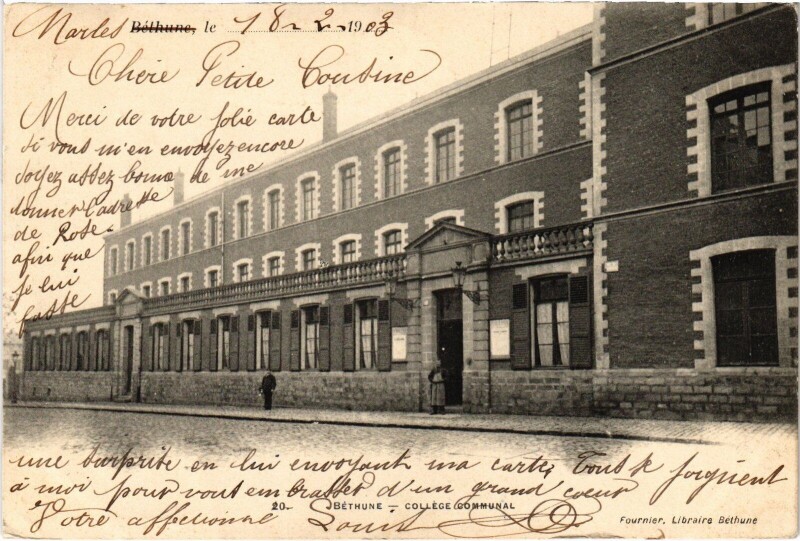 Marles Béthune, le 18-2-1903
Chère Petite Cousine
Merci de votre jolie carte
si vous m'en envoyez encore
soyez assez bonne de me
donner l'adresse
de Rose
afin que
je lui
fasse
une surprise en lui envoyant ma carte, Tous se joignent
à moi pour vous embrasser d'un grand cœur
Votre affectionné Louis
20. BÉTHUNE — COLLÈGE COMMUNAL
Fournier, Libraire Béthune